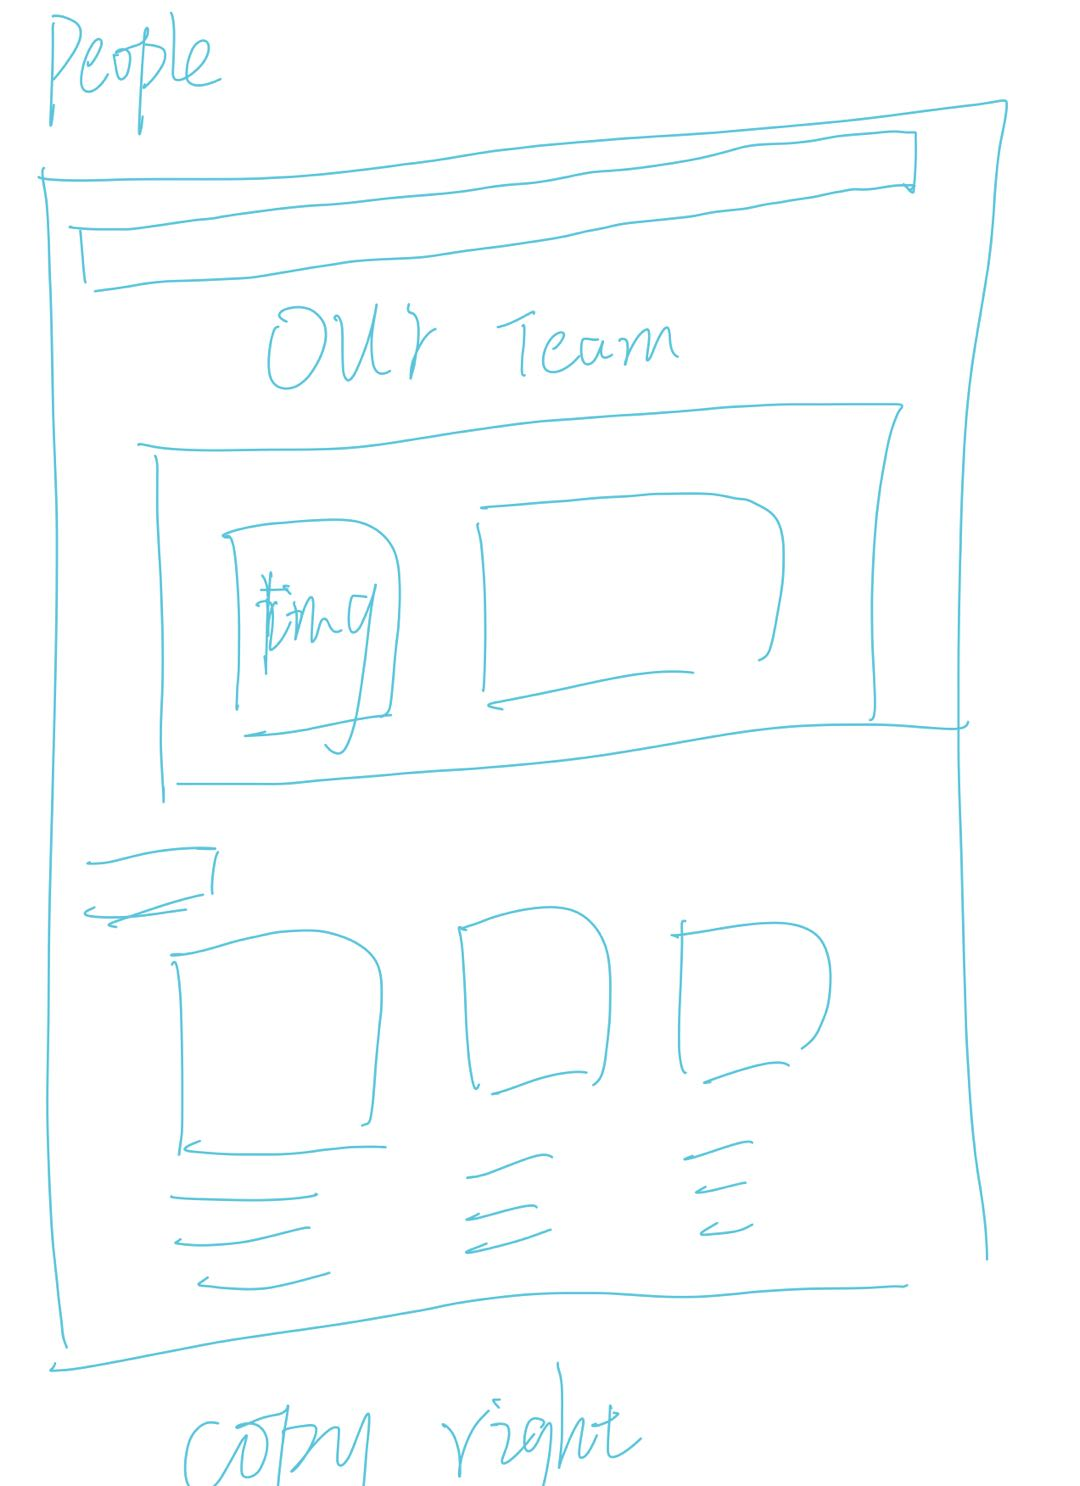 People
Our Team
img
copy right